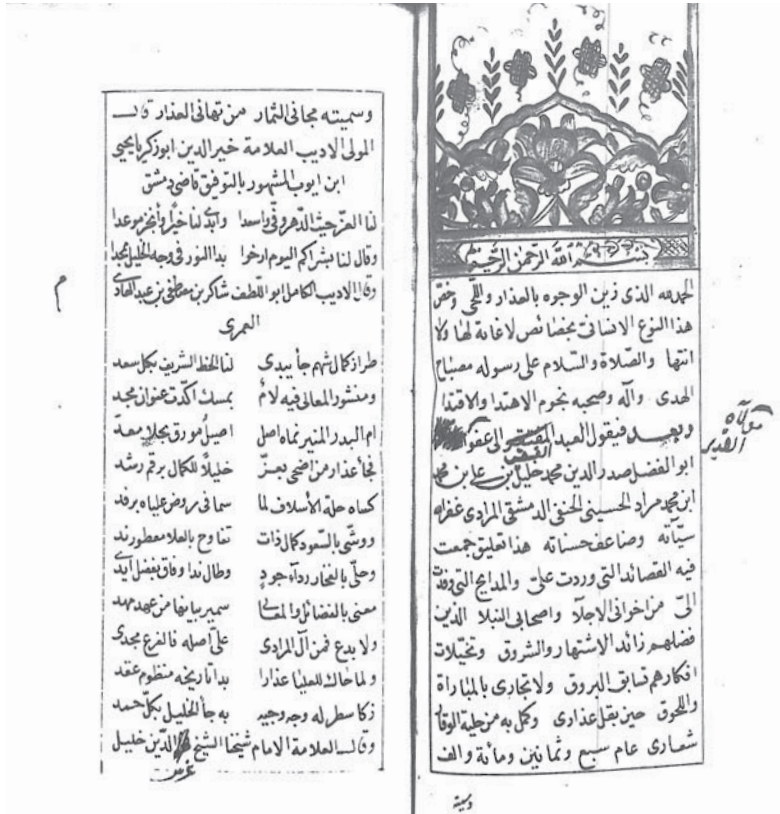 بسم الله الرحمن الرحيم
الحمد لله الذي زين الوجوه بالعذار واللحى وخص
هذا النوع الانساني بخصائص لا غاية لها ولا
انتها والصلاة والسلام على رسوله مصباح
الهدى وآله وصحبه نجوم الاهتدا والاقتدا
وبعد فيقول العبد المفتقر الى عفو
مولاه
القدير
ابو الفضل صدر الدين محمد خليل بن علي بن محمد
ابن محمد مراد الحسيني الحنفي الدمشقي المرادي غفر الله
سيآته وضاعف حسناته هذا تعليق جمعت
فيه القصائد التي وردت علي والمدايح التي وفدت
الى من اخواني الاجلآ واصحابي النبلا الذين
فضلهم زائد الاشتهار والشروق وتخيلات
افكارهم تسابق البروق ولا تجارى بالمباراة
واللحوق حين بقل عذارى وكمل به من حلية الوقار
شعارى عام سبع وثمانين ومائة والف
وسميته
وسميته مجاني الثمار من تهاني العذار قال
المولى الاديب العلامة خير الدين ابو زكريا يحيى
ابن ايوب المشهور بالتوفيق قاضي دمشق
لنا العز حيث الدهر وفى واسعدا وابدى لنا خيرا وأنجز موعدا
وقال لنا بشراكم اليوم ارخوا بدا النور في وجه الخليل مجدا
وقال الاديب الكامل ابو اللطف شاكر بن مصطفى بن عبد الهادي
العمري
م
طراز كمال شهم جا يبدى لنا الحظ الشريف بكل سعد
ومنشور المعالي فيه لام بمسك اكدت عنوان مجد
ام البدر المنير نماه اصل اصيل مورق بجلا معد
فجا عذار من اضحى بعز خليلا للكمال برقم رشد
كساه حلة الأسلاف لما سما في روض علياه برفد
ووشى بالسعود كمال ذات تفاوح بالعلا معطور ند
وحلى بالفخار ردآء جود وطال ندا وفاق بفضل أيدى
معنى بالفضائل والمعالي سمير بيانها من عهد مهد
ولا بدع فمن آل المرادى على اصله فالفرع مجدى
ولما حاك للعليا عذارا بدا تاريخه منظوم عقد
زكا سطر له وجه وجيه به جا الخليل بكل حمد
وقال العلامة الامام شيخنا الشيخ الدين خليل